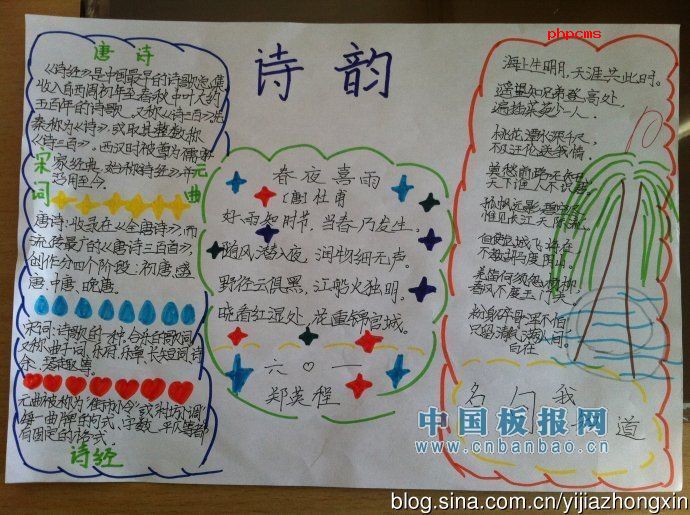 诗韵
唐诗
《诗经》是中国最早的诗歌总集
收入自西周初年至春秋中叶大约
五百年的诗歌。又称《诗三百》先
秦称为《诗》,或取其整数称
《诗三百》。西汉时被尊为儒
家经典,始称《诗经》,并
沿用至今。
宋词
元曲
唐诗:收录在《全唐诗》,而
流传最广的《唐诗三百首》,
创作分四个阶段:初唐、盛
唐、中唐、晚唐。
宋词:诗歌的一种,合乐的歌词,
又称曲子词、乐府、乐章、长短句、诗
余、琴趣等。
元曲被称为
每一曲牌的句式、字数、平仄等都
有固定的格式。
诗经
春夜喜雨
[唐]杜甫
好雨知时节,当春乃发生。
随风潜入夜,润物细无声。
野径云俱黑,江船火独明。
晓看红湿处,花重锦官城。
六〇一
郑英程
phpcms
海上生明月,天涯共此时。
遥望知兄弟登高处,
遍插茱萸少一人。
桃花潭水深千尺,
不及汪伦送我情。
莫愁前路无知己,
天下谁人不识君。
孤帆远影碧空尽,
惟见长江天际流。
但使龙城飞将在,
不教胡马度阴山。
羌笛何须怨杨柳,
春风不度玉门关。
粉身碎骨浑不怕
只留清白在人间。
名门我
道
中国板报网
www.cnbanbao.cn
blog.sina.com.cn/yijiazhongxin